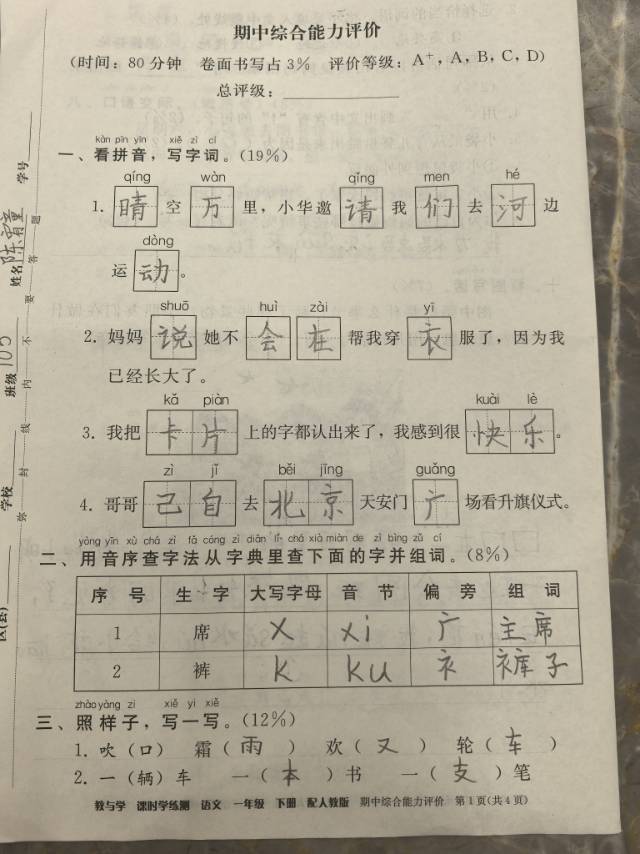 期中综合能力评价
(时间：80分钟 卷面书写占3% 评价等级：A⁺，A，B，C，D)
总评级：
kàn pīn yīn xiě zì cí
一、看拼音，写字词。(19%)
qíng wàn qǐng men hé
1. 晴空万里，小华邀请我们去河边
dòng
运动。
shuō huì zài yī
2. 妈妈说她不会在帮我穿衣服了，因为我
已经长大了。
kǎ piàn kuài lè
3. 我把卡片上的字都认出来了，我感到很快乐。
zì jǐ běi jīng guǎng
4. 哥哥己自去北京天安门广场看升旗仪式。
yòng yīn xù chá zì fǎ cóng zì diǎn lǐ chá xià miàn de zì bìng zǔ cí
二、用音序查字法从字典里查下面的字并组词。(8%)
序号 生字 大写字母 音节 偏旁 组词
1 席 X xi 广 主席
2 裤 K ku 衤 裤子
zhào yàng zi xiě yi xiě
三、照样子，写一写。(12%)
1. 吹（口） 霜（雨） 欢（又） 轮（车）
2. 一（辆）车 一（本）书 一（支）笔
教与学 课时学练测 语文 一年级 下册 配人教版 期中综合能力评价 第1页(共4页)
学号
姓名
班级 105
学校
区(县)
弥 封 线 内 不 要 答 题